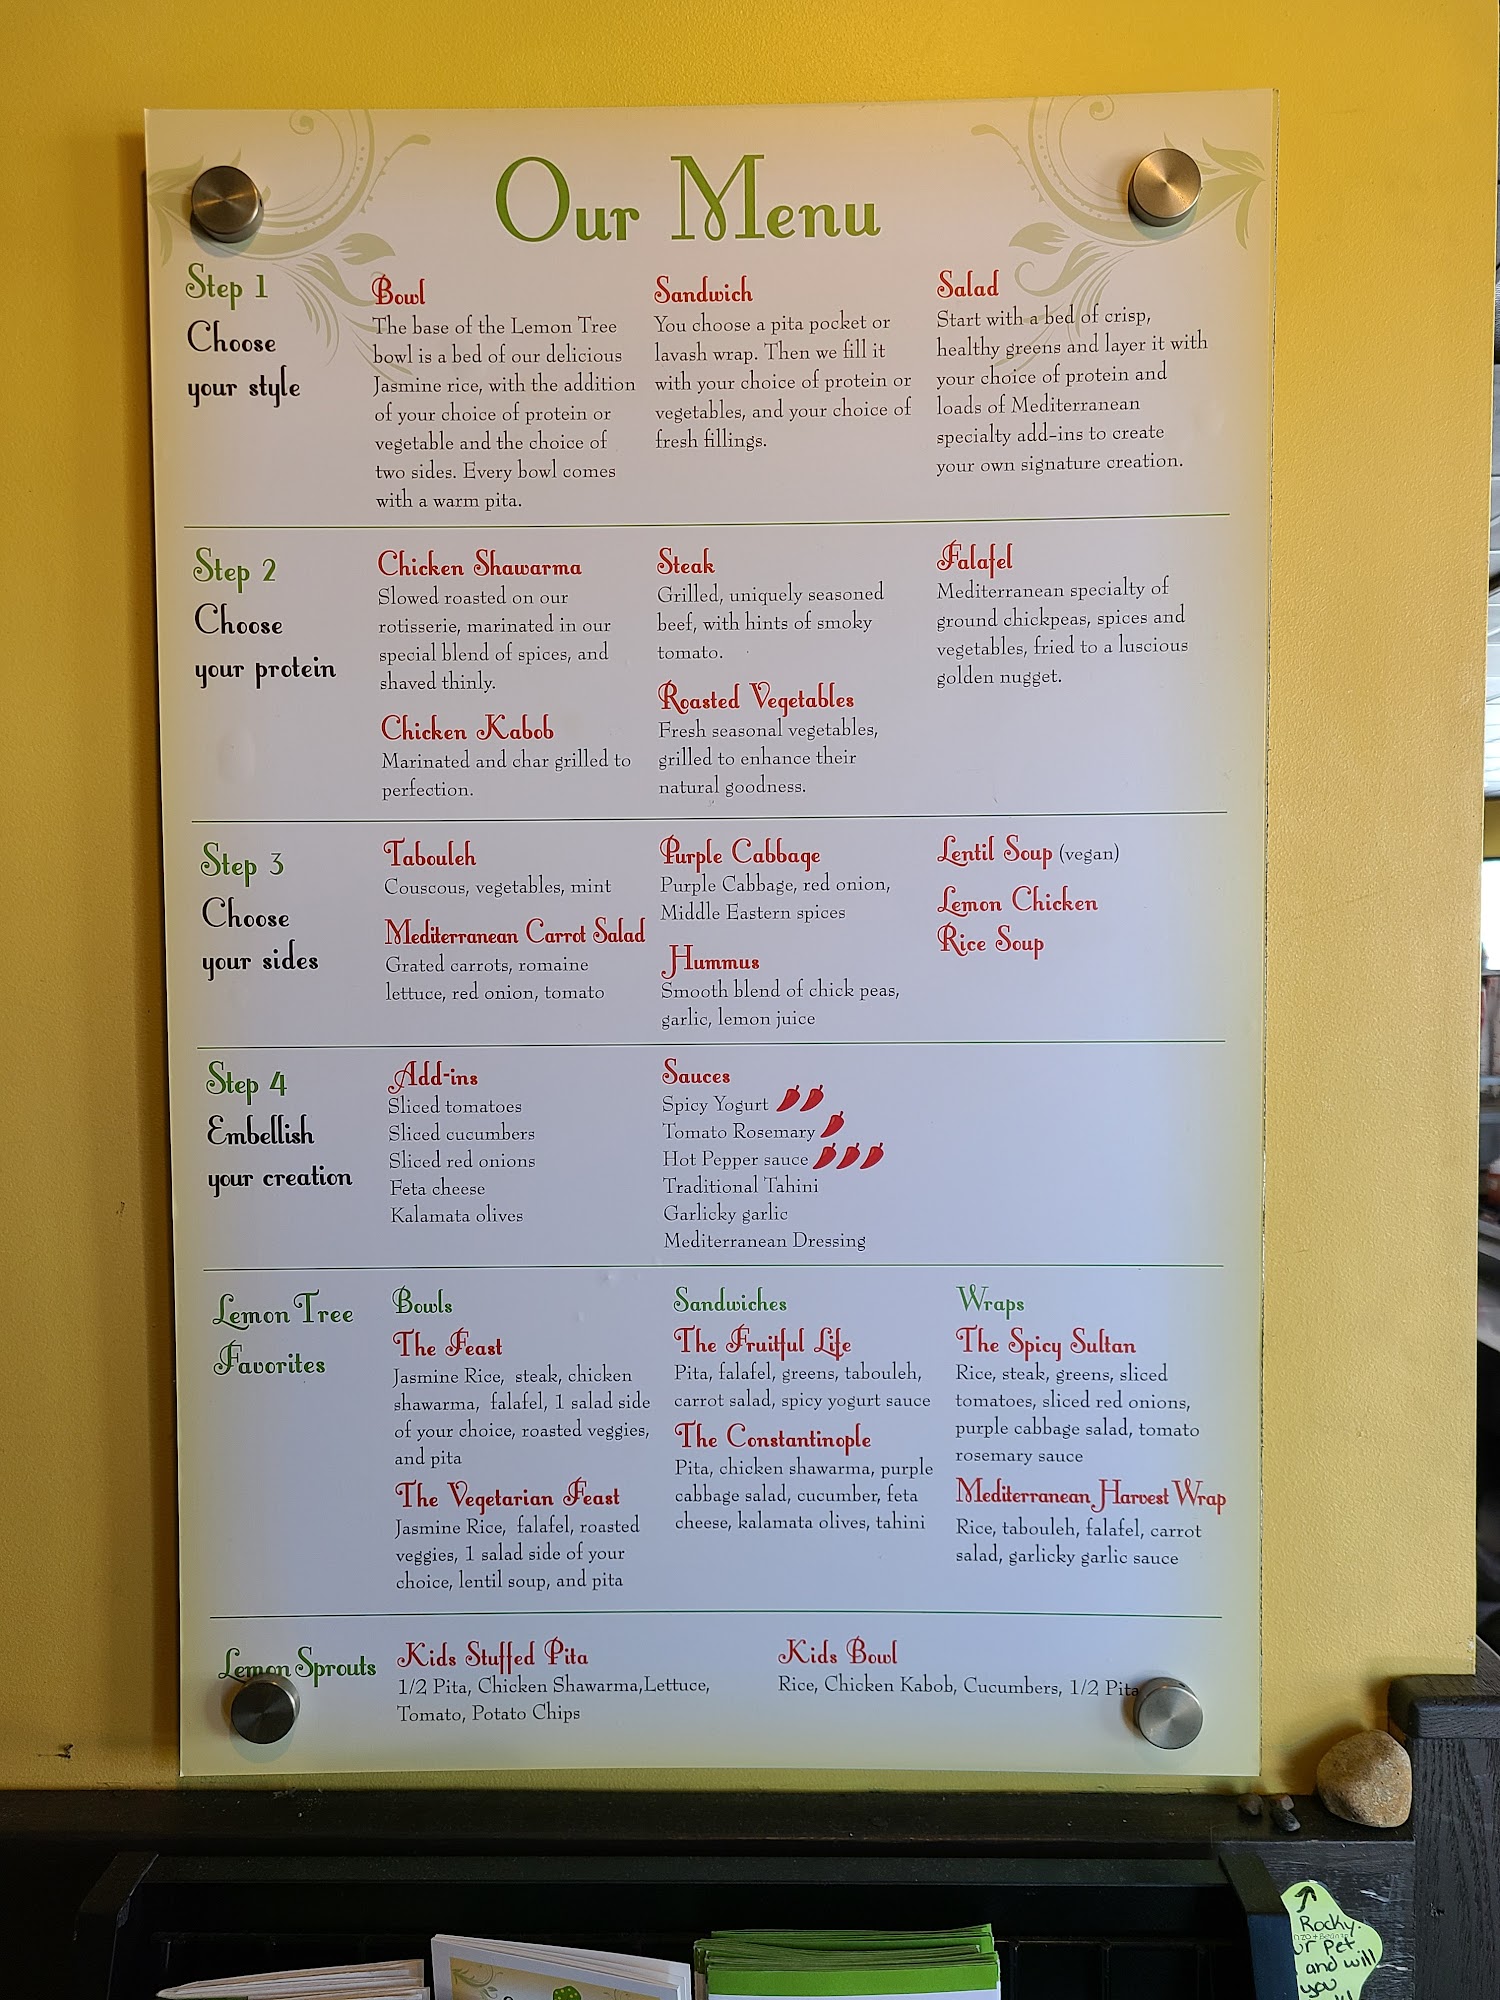 Our Menu
Step 1
Choose
your style
Bowl
The base of the Lemon Tree
bowl is a bed of our delicious
Jasmine rice, with the addition
of your choice of protein or
vegetable and the choice of
two sides. Every bowl comes
with a warm pita.
Sandwich
You choose a pita pocket or
lavash wrap. Then we fill it
with your choice of protein or
vegetables, and your choice of
fresh fillings.
Salad
Start with a bed of crisp,
healthy greens and layer it with
your choice of protein and
loads of Mediterranean
specialty add-ins to create
your own signature creation.
Step 2
Choose
your protein
Chicken Shawarma
Slowed roasted on our
rotisserie, marinated in our
special blend of spices, and
shaved thinly.
Chicken Kabob
Marinated and char grilled to
perfection.
Steak
Grilled, uniquely seasoned
beef, with hints of smoky
tomato.
Roasted Vegetables
Fresh seasonal vegetables,
grilled to enhance their
natural goodness.
Falafel
Mediterranean specialty of
ground chickpeas, spices and
vegetables, fried to a luscious
golden nugget.
Step 3
Choose
your sides
Tabouleh
Couscous, vegetables, mint
Mediterranean Carrot Salad
Grated carrots, romaine
lettuce, red onion, tomato
Purple Cabbage
Purple Cabbage, red onion,
Middle Eastern spices
Hummus
Smooth blend of chick peas,
garlic, lemon juice
Lentil Soup (vegan)
Lemon Chicken
Rice Soup
Step 4
Embellish
your creation
Add-ins
Sliced tomatoes
Sliced cucumbers
Sliced red onions
Feta cheese
Kalamata olives
Sauces
Spicy Yogurt
Tomato Rosemary
Hot Pepper sauce
Traditional Tahini
Garlicky garlic
Mediterranean Dressing
Lemon Tree
Favorites
Bowls
The Feast
Jasmine Rice, steak, chicken
shawarma, falafel, 1 salad side
of your choice, roasted veggies,
and pita
The Vegetarian Feast
Jasmine Rice, falafel, roasted
veggies, 1 salad side of your
choice, lentil soup, and pita
Sandwiches
The Fruitful Life
Pita, falafel, greens, tabouleh,
carrot salad, spicy yogurt sauce
The Constantinople
Pita, chicken shawarma, purple
cabbage salad, cucumber, feta
cheese, kalamata olives, tahini
Wraps
The Spicy Sultan
Rice, steak, greens, sliced
tomatoes, sliced red onions,
purple cabbage salad, tomato
rosemary sauce
Mediterranean Harvest Wrap
Rice, tabouleh, falafel, carrot
salad, garlicky garlic sauce
Lemon Sprouts
Kids Stuffed Pita
1/2 Pita, Chicken Shawarma,Lettuce,
Tomato, Potato Chips
Kids Bowl
Rice, Chicken Kabob, Cucumbers, 1/2 Pita
Rocky.
ur pet
and will
you